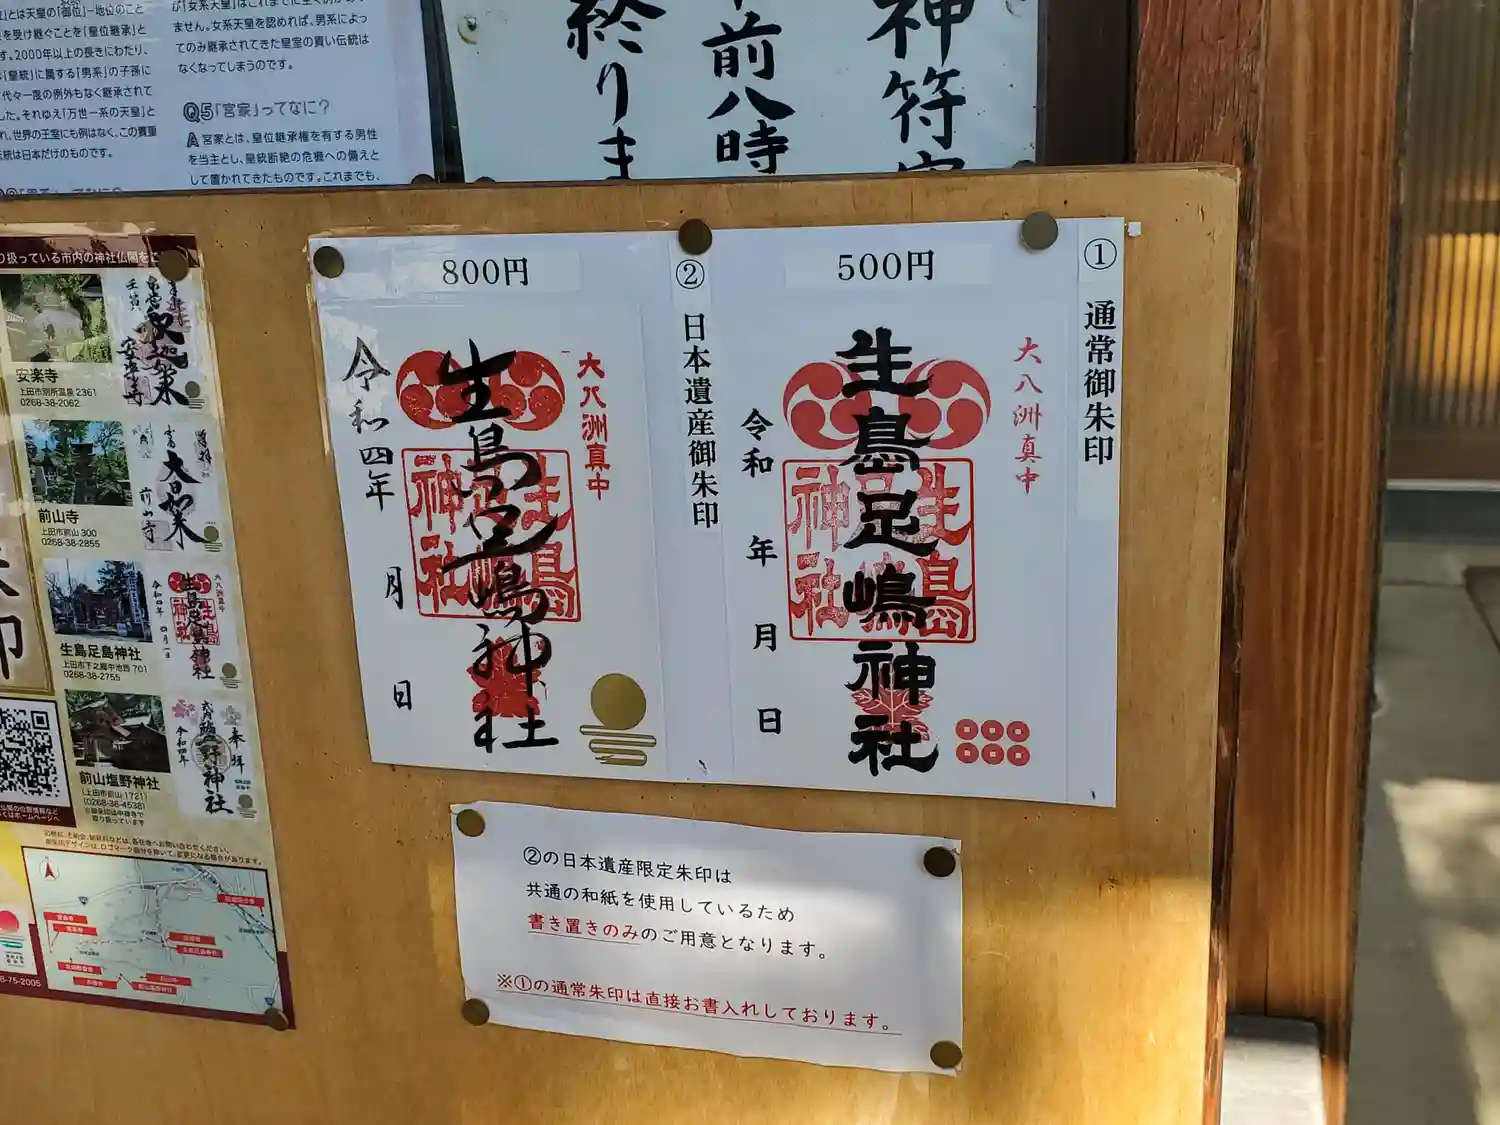 とは天皇の「御位」=地位のこと
を受け継ぐことを「皇位継承」と
す。2000年以上の長きにわたり、
「皇統」に属する「男系」の子孫に
代々一度の例外もなく継承されて
した。それゆえ「万世一系の天皇」と
れ、世界の王室にも例はなく、この貴重
伝統は日本だけのものです。
ません。女系天皇を認めれば、男系によっ
てのみ継承されてきた皇室の貴い伝統は
なくなってしまうのです。
Q5「宮家」ってなに?
A 宮家とは、皇位継承権を有する男性
を当主とし、皇統断絶の危機への備えと
して置かれてきたものです。これまでも、
神符
午前八時
終りま
① 通常御朱印
500円
大八洲真中
生島足嶋神社
生島足嶋神社
令和 年 月 日
② 日本遺産御朱印
800円
大八洲真中
生島足嶋神社
生島足嶋神社
令和四年 月 日
②の日本遺産限定朱印は
共通の和紙を使用しているため
書き置きのみのご用意となります。
※①の通常朱印は直接お書入れしております。
り扱っている市内の神社仏閣をご
安楽寺
上田市別所温泉 2361
0268-38-2062
前山寺
上田市前山 300
0268-38-2855
生島足島神社
上田市下之郷中池西 701
0268-38-2755
前山塩野神社
(上田市前山 1721)
(0268-38-4538)
くはホームページへ
8-75-2005